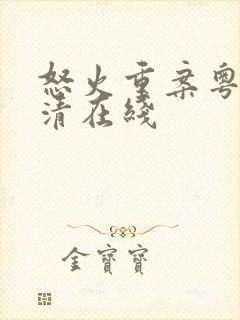 怒火重案粤
清在线
金寶寶